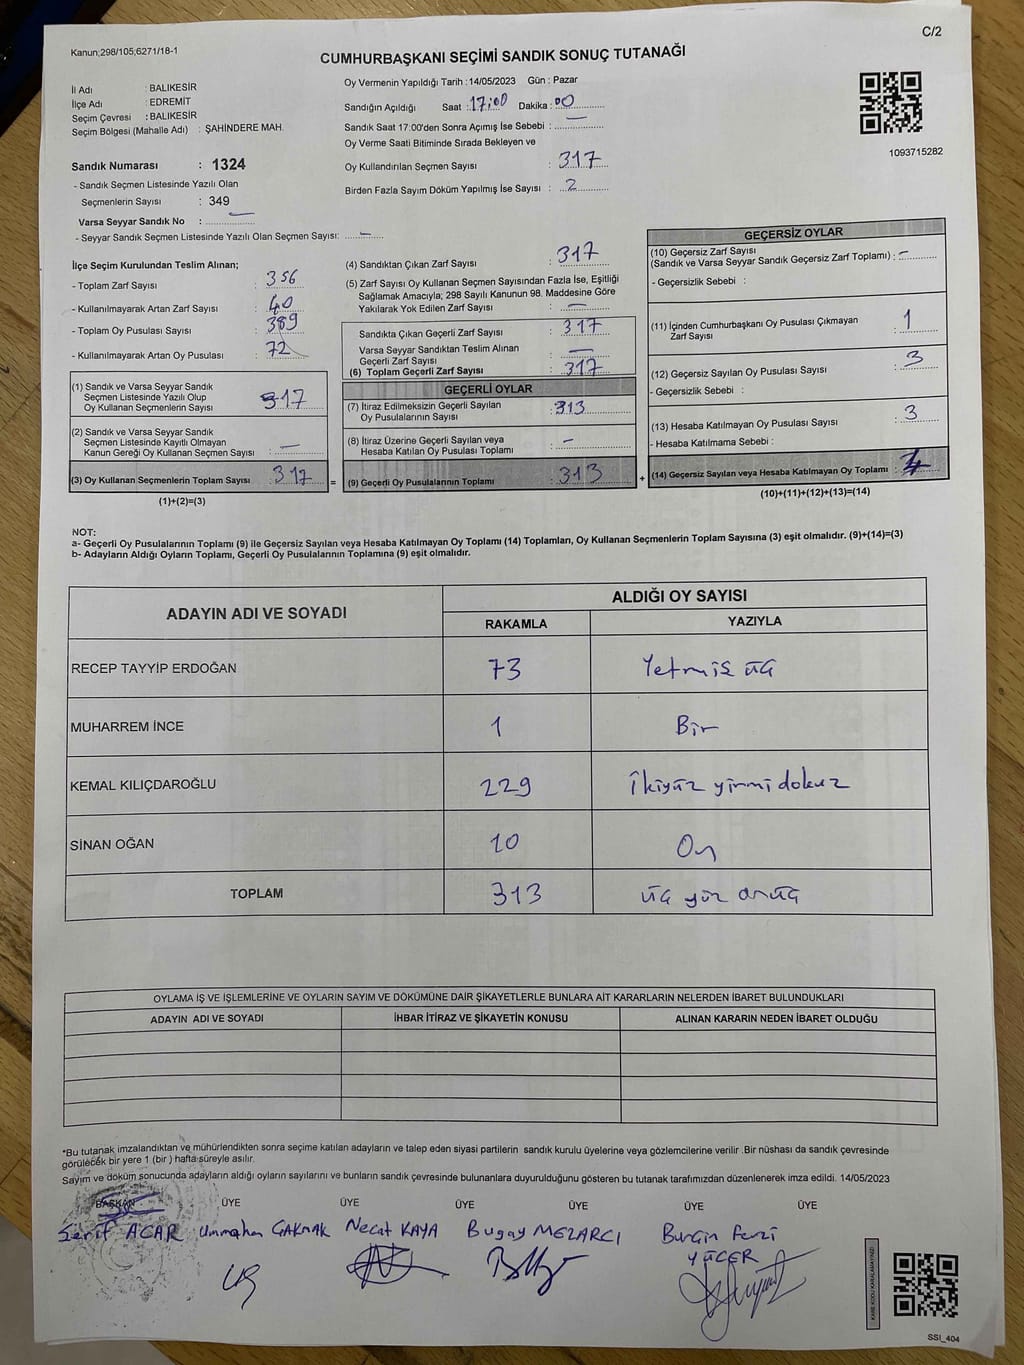 Kanun;298/105,6271/18-1
C/2
CUMHURBAŞKANI SEÇİMİ SANDIK SONUÇ TUTANAĞI
İl Adı : BALIKESİR
İlçe Adı : EDREMİT
Seçim Çevresi : BALIKESİR
Seçim Bölgesi (Mahalle Adı) : ŞAHİNDERE MAH.
Sandık Numarası : 1324
- Sandık Seçmen Listesinde Yazılı Olan
Seçmenlerin Sayısı : 349
Varsa Seyyar Sandık No : —
- Seyyar Sandık Seçmen Listesinde Yazılı Olan Seçmen Sayısı: —
Oy Vermenin Yapıldığı Tarih : 14/05/2023 Gün : Pazar
Sandığın Açıldığı Saat : 17:00 Dakika : 00
Sandık Saat 17:00'den Sonra Açımış İse Sebebi : —
Oy Verme Saati Bitiminde Sırada Bekleyen ve
Oy Kullandırılan Seçmen Sayısı : 317
Birden Fazla Sayım Döküm Yapılmış İse Sayısı : 2
1093715282
İlçe Seçim Kurulundan Teslim Alınan;
- Toplam Zarf Sayısı : 356
- Kullanılmayarak Artan Zarf Sayısı : 40
- Toplam Oy Pusulası Sayısı : 389
- Kullanılmayarak Artan Oy Pusulası : 72
(1) Sandık ve Varsa Seyyar Sandık
Seçmen Listesinde Yazılı Olup
Oy Kullanan Seçmenlerin Sayısı : 317
(2) Sandık ve Varsa Seyyar Sandık
Seçmen Listesinde Kayıtlı Olmayan
Kanun Gereği Oy Kullanan Seçmen Sayısı : —
(3) Oy Kullanan Seçmenlerin Toplam Sayısı : 317
(1)+(2)=(3)
(4) Sandıktan Çıkan Zarf Sayısı : 317
(5) Zarf Sayısı Oy Kullanan Seçmen Sayısından Fazla İse, Eşitliği
Sağlamak Amacıyla; 298 Sayılı Kanunun 98. Maddesine Göre
Yakılarak Yok Edilen Zarf Sayısı : —
Sandıkta Çıkan Geçerli Zarf Sayısı : 317
Varsa Seyyar Sandıktan Teslim Alınan
Geçerli Zarf Sayısı : —
(6) Toplam Geçerli Zarf Sayısı : 317
GEÇERLİ OYLAR
(7) İtiraz Edilmeksizin Geçerli Sayılan
Oy Pusulalarının Sayısı : 313
(8) İtiraz Üzerine Geçerli Sayılan veya
Hesaba Katılan Oy Pusulası Toplamı : —
= (9) Geçerli Oy Pusulalarının Toplamı : 313 +
GEÇERSİZ OYLAR
(10) Geçersiz Zarf Sayısı
(Sandık ve Varsa Seyyar Sandık Geçersiz Zarf Toplamı) : —
- Geçersizlik Sebebi :
(11) İçinden Cumhurbaşkanı Oy Pusulası Çıkmayan
Zarf Sayısı : 1
(12) Geçersiz Sayılan Oy Pusulası Sayısı : 3
- Geçersizlik Sebebi :
(13) Hesaba Katılmayan Oy Pusulası Sayısı : 3
- Hesaba Katılmama Sebebi :
(14) Geçersiz Sayılan veya Hesaba Katılmayan Oy Toplamı : 4
(10)+(11)+(12)+(13)=(14)
NOT:
a- Geçerli Oy Pusulalarının Toplamı (9) ile Geçersiz Sayılan veya Hesaba Katılmayan Oy Toplamı (14) Toplamları, Oy Kullanan Seçmenlerin Toplam Sayısına (3) eşit olmalıdır. (9)+(14)=(3)
b- Adayların Aldığı Oyların Toplamı, Geçerli Oy Pusulalarının Toplamına (9) eşit olmalıdır.
ADAYIN ADI VE SOYADI ALDIĞI OY SAYISI
RAKAMLA YAZIYLA
RECEP TAYYİP ERDOĞAN 73 Yetmiş üç
MUHARREM İNCE 1 Bir
KEMAL KILIÇDAROĞLU 229 İkiyüz yirmi dokuz
SİNAN OĞAN 10 On
TOPLAM 313 üç yüz onüç
OYLAMA İŞ VE İŞLEMLERİNE VE OYLARIN SAYIM VE DÖKÜMÜNE DAİR ŞİKAYETLERLE BUNLARA AİT KARARLARIN NELERDEN İBARET BULUNDUKLARI
ADAYIN ADI VE SOYADI İHBAR İTİRAZ VE ŞİKAYETİN KONUSU ALINAN KARARIN NEDEN İBARET OLDUĞU
*Bu tutanak imzalandıktan ve mühürlendikten sonra seçime katılan adayların ve talep eden siyasi partilerin sandık kurulu üyelerine veya gözlemcilerine verilir .Bir nüshası da sandık çevresinde
görülecek bir yere 1 (bir ) hafta süreyle asılır.
Sayım ve döküm sonucunda adayların aldığı oyların sayılarını ve bunların sandık çevresinde bulunanlara duyurulduğunu gösteren bu tutanak tarafımızdan düzenlenerek imza edildi. 14/05/2023
BAŞKAN ÜYE ÜYE ÜYE ÜYE ÜYE ÜYE
Şerif ACAR Ummahan ÇAKMAK Necat KAYA Bugay MEZARCI Burçin Ferzi
YÜCER
KARE KODU KARALAMAYINIZ!
SSI_404